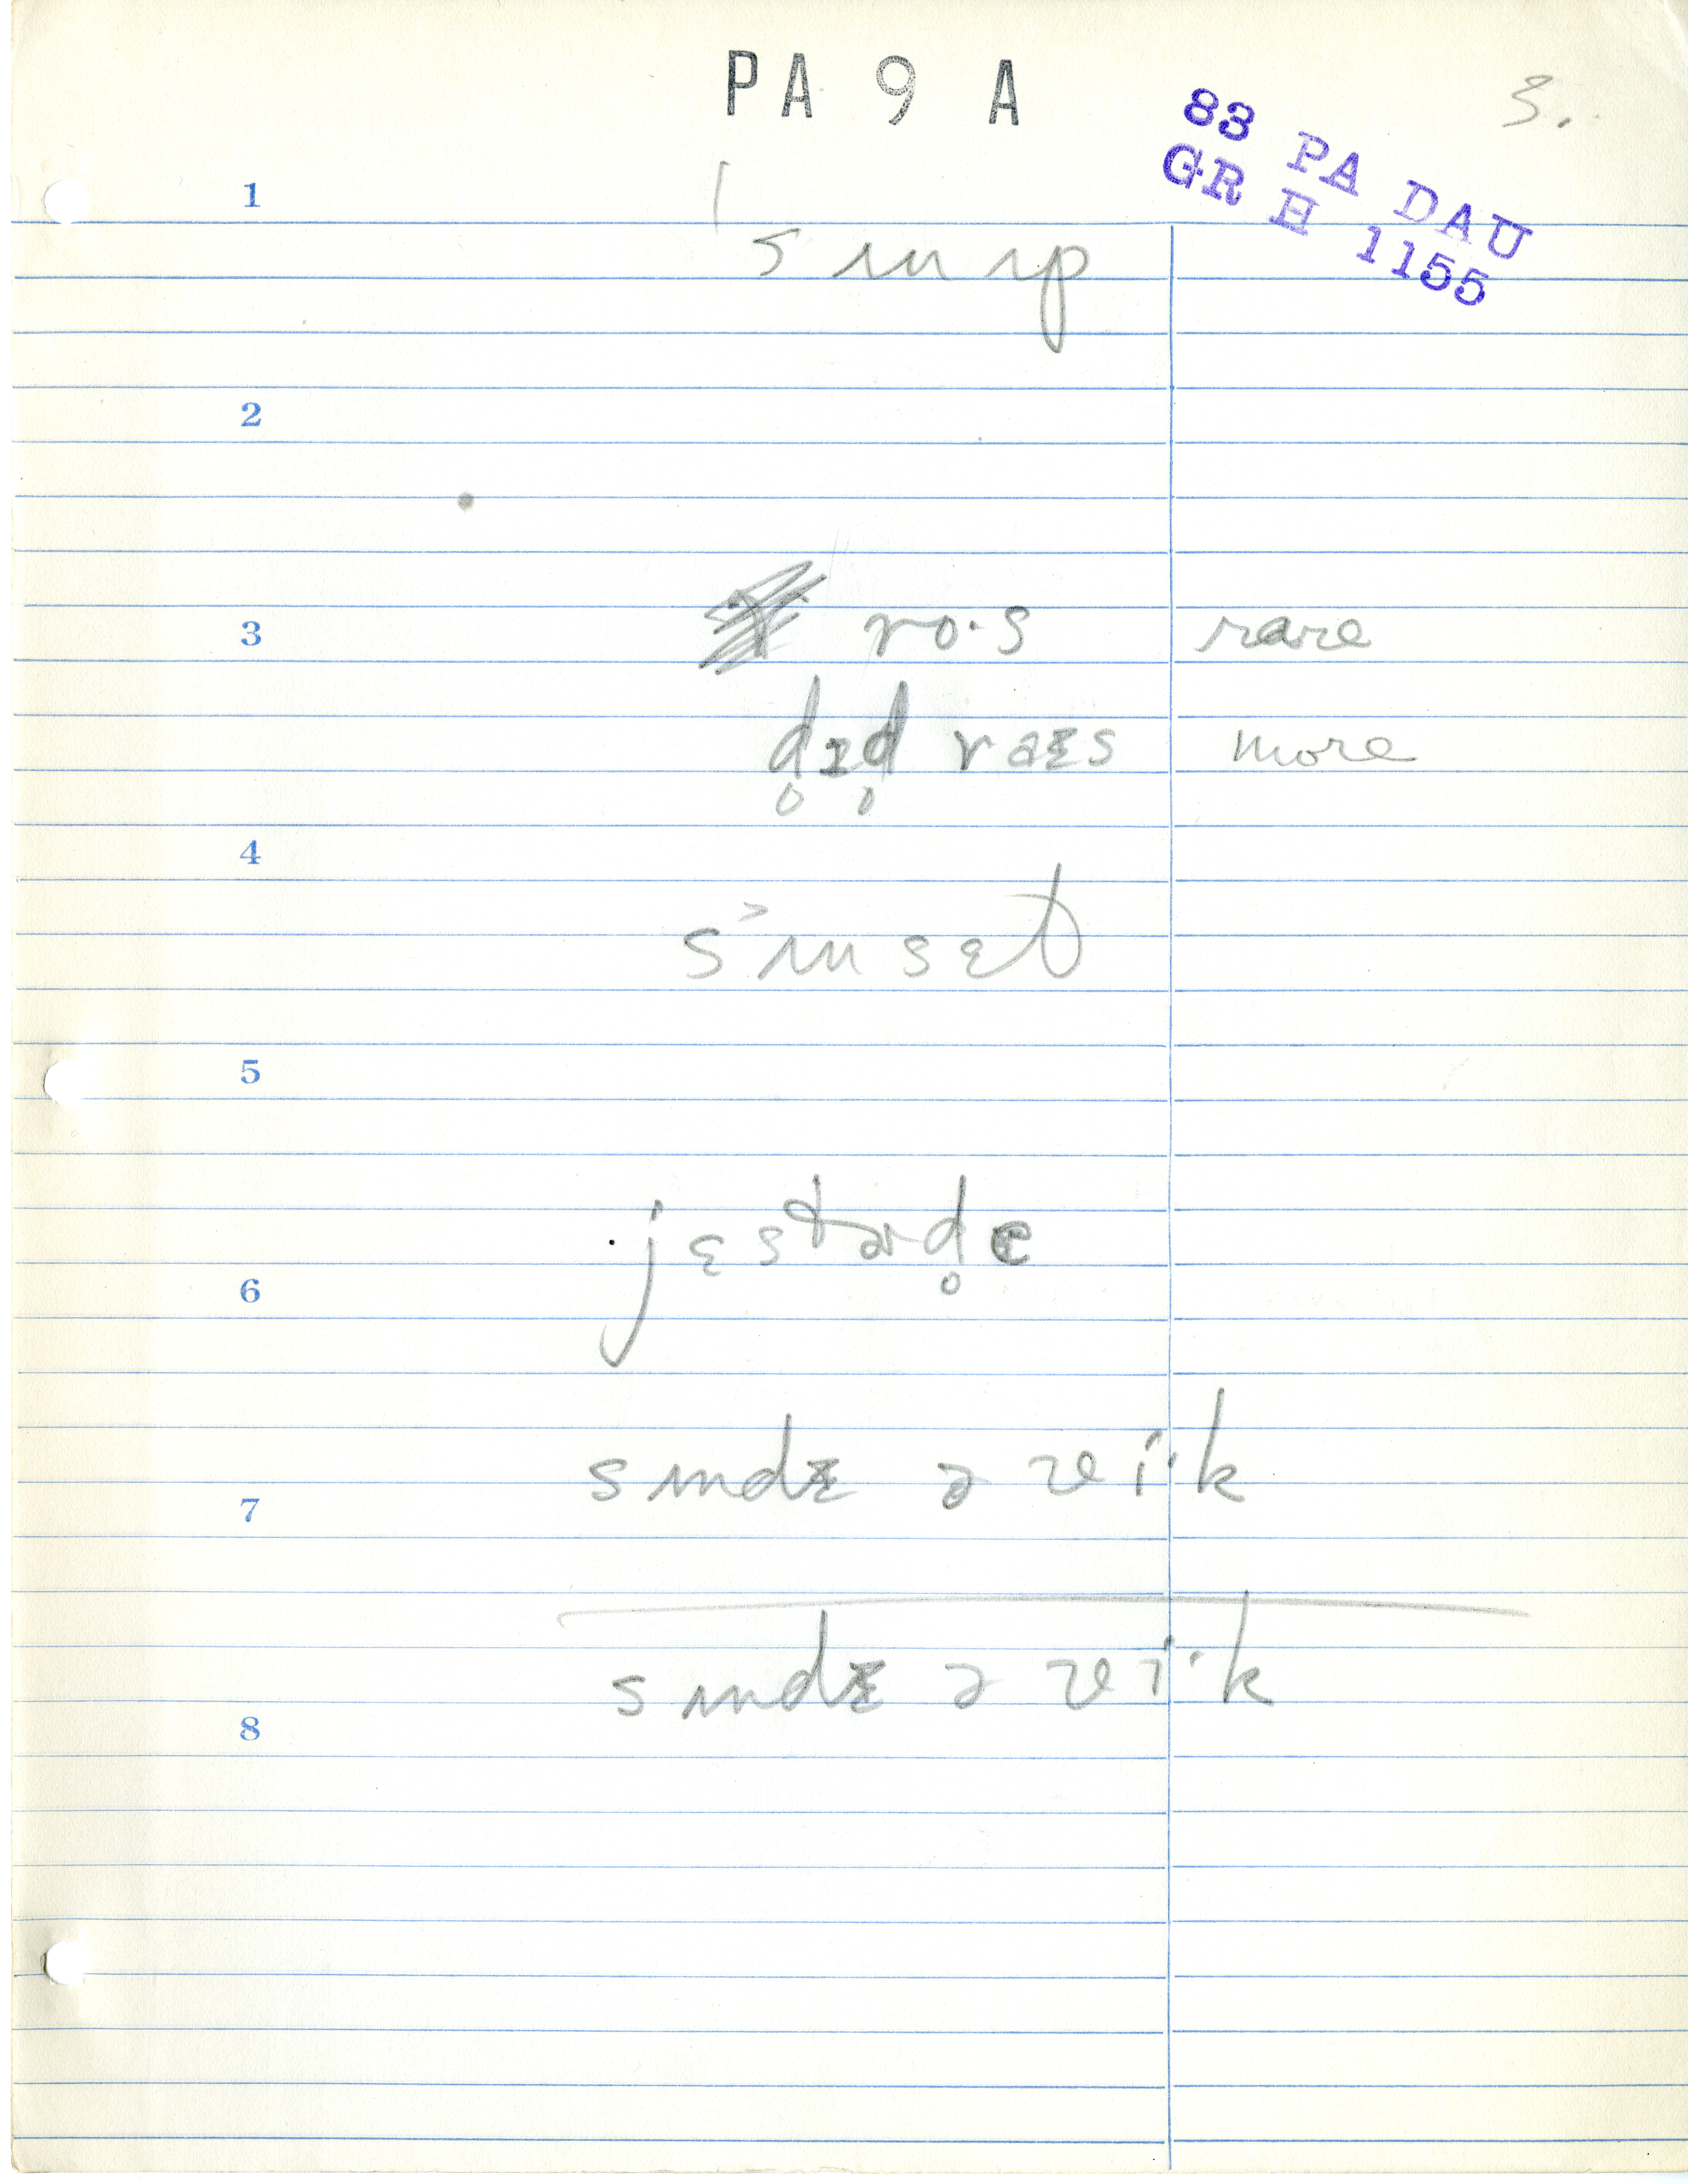 PA 9 A
3.
83 PA DAU
GR H 1155
1
ˈsʌnʌp
2
3 ro·s rare
dɪ̥d raɪs more
4
sʌnsɛt
5
jɛstərd̥ɛ
6
sʌndɪ ə vi·k
7
sʌndɪ ə vi·k
8